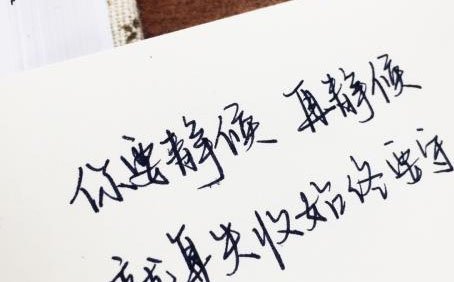 你要静候 再静候
就算失收始终要守